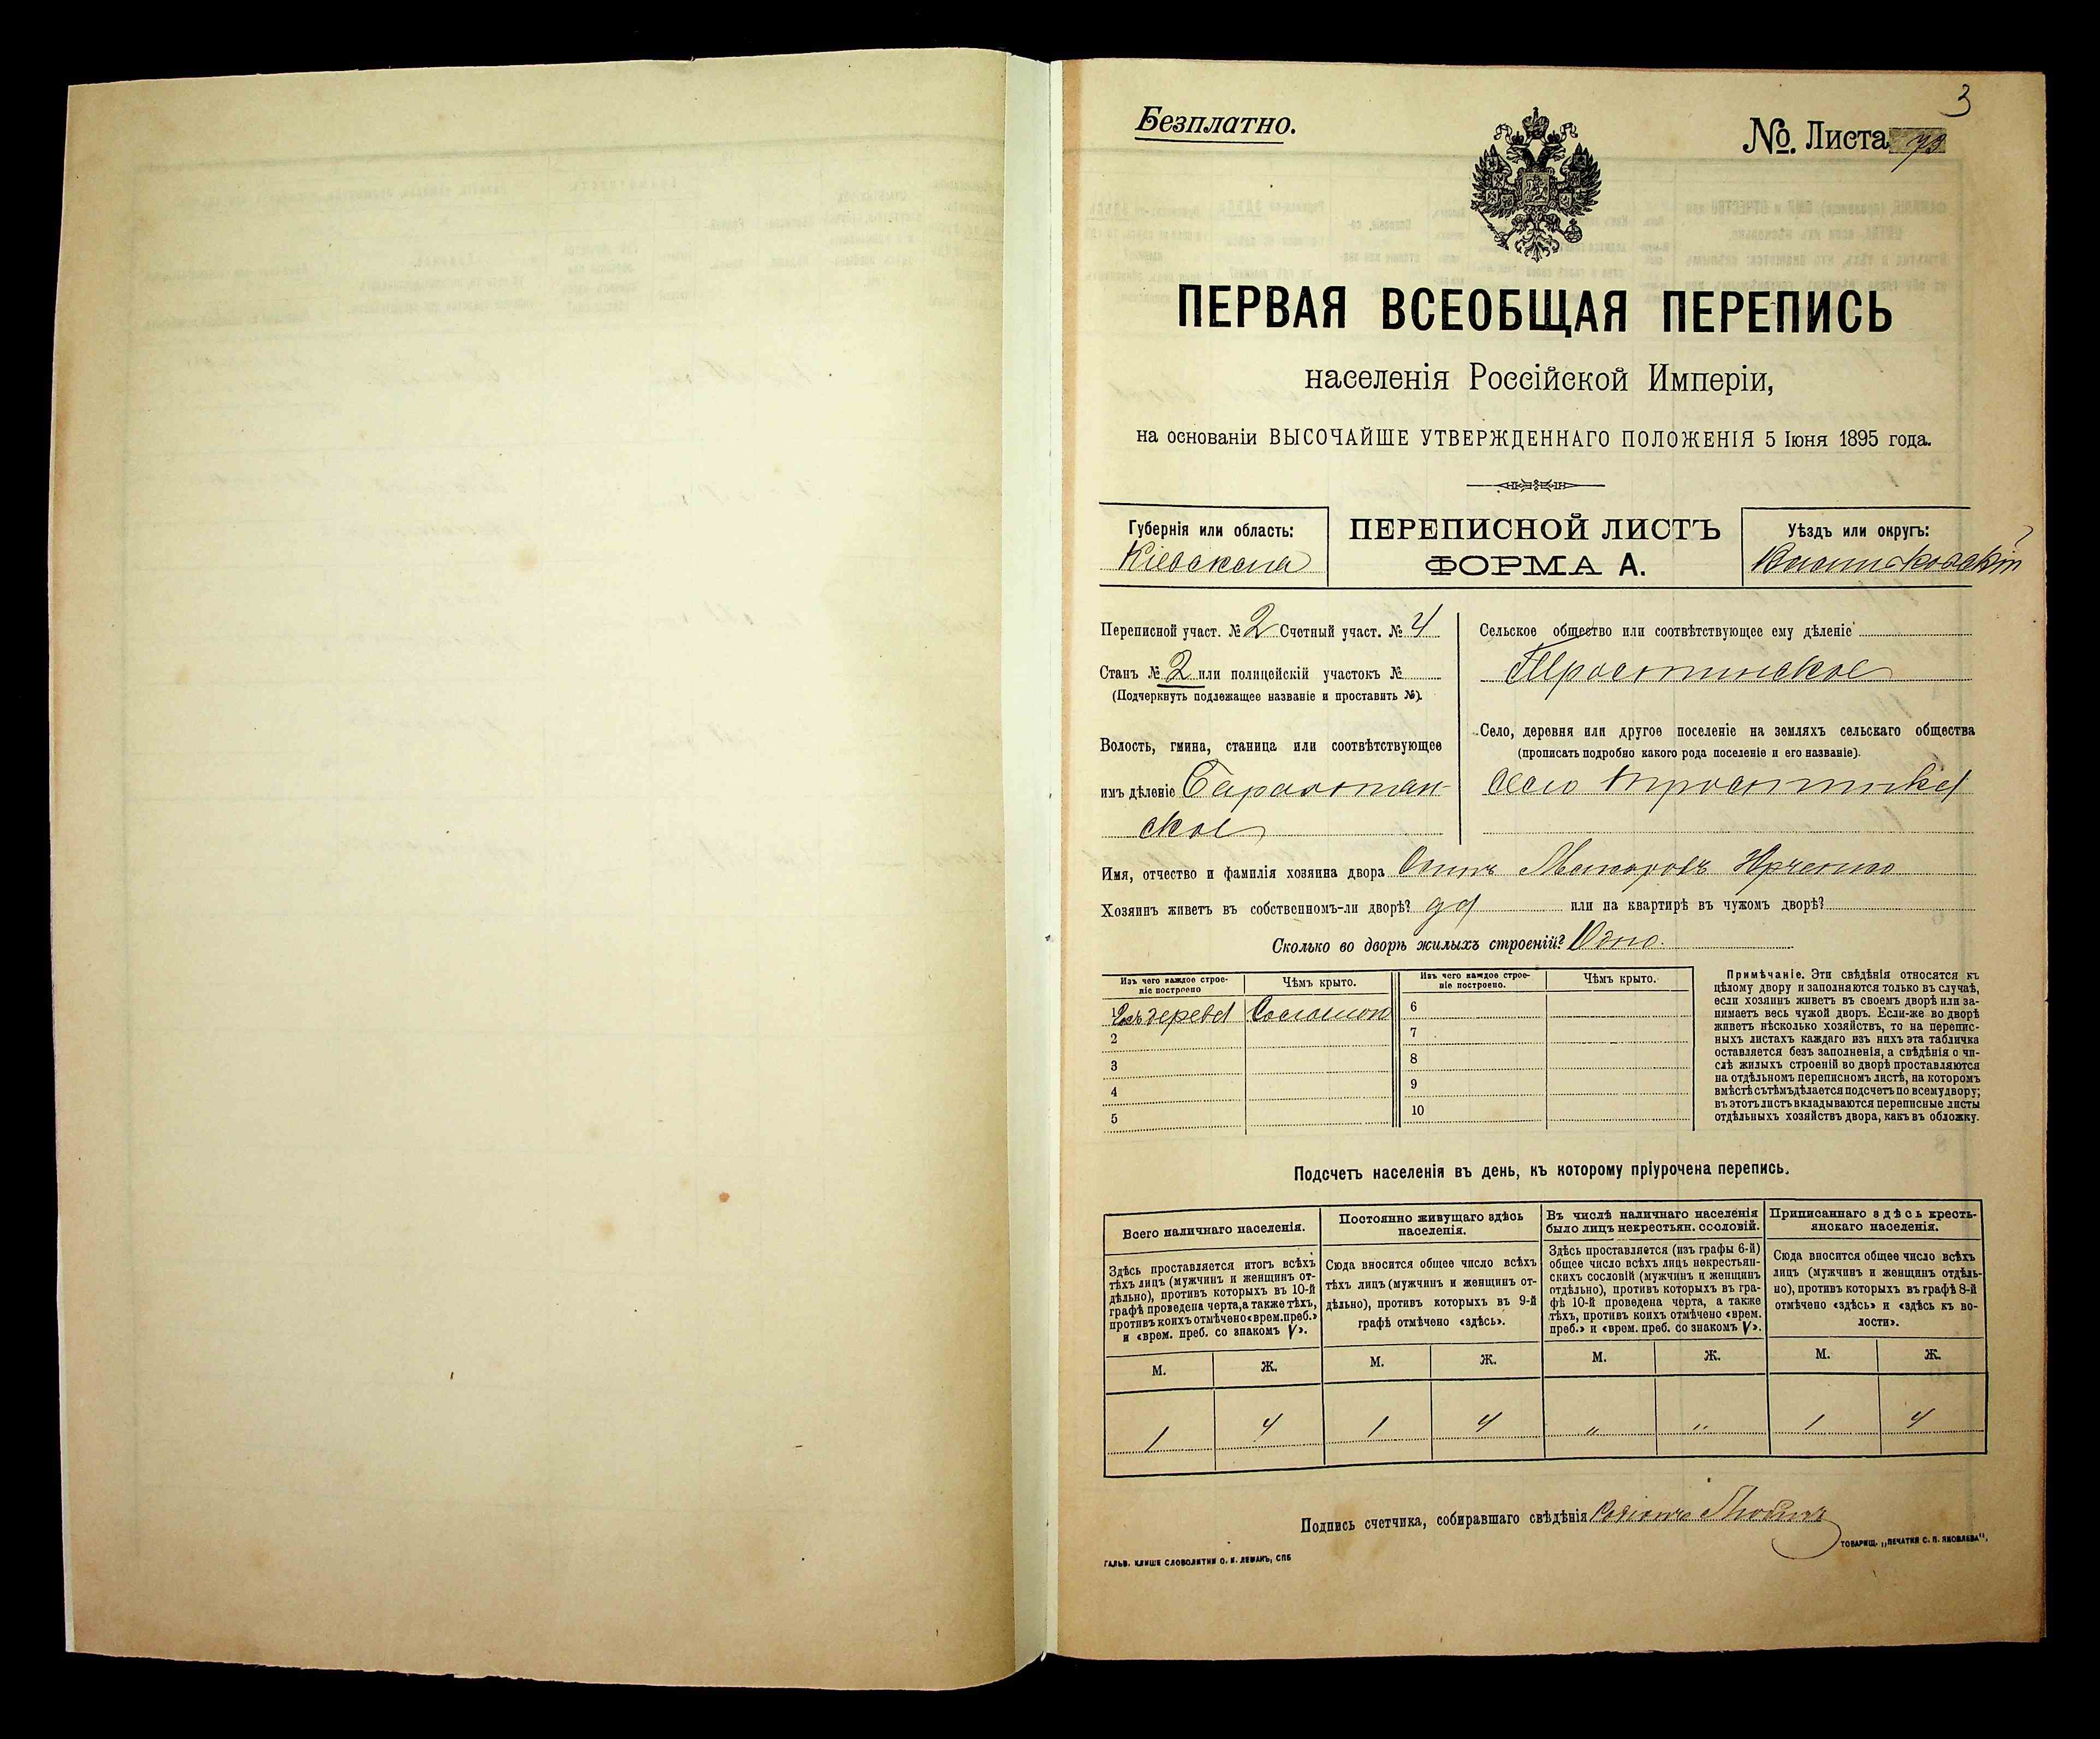 3
Безплатно.
№. Листа 73
ПЕРВАЯ ВСЕОБЩАЯ ПЕРЕПИСЬ
населенія Россійской Имперіи,
на основаніи ВЫСОЧАЙШЕ УТВЕРЖДЕННАГО ПОЛОЖЕНІЯ 5 Іюня 1895 года.
Губернія или область:
Кіевская
ПЕРЕПИСНОЙ ЛИСТЪ
ФОРМА А.
Уѣздъ или округъ:
Васильковскій
Переписной участ. № 2 Счетный участ. № 4
Станъ № 2 или полицейскій участокъ №
(Подчеркнуть подлежащее названіе и проставить №).
Волость, гмина, станица или соотвѣтствующее
имъ дѣленіе
ское
Сельское общество или соотвѣтствующее ему дѣленіе
Тростинское
Село, деревня или другое поселеніе на земляхъ сельскаго общества
(прописать подробно какого рода поселеніе и его названіе).
село Тростинка
Имя, отчество и фамилія хозяина двора Осипъ
Хозяинъ живетъ въ собственномъ-ли дворѣ? да или на квартирѣ въ чужомъ дворѣ?
Сколько во дворѣ жилыхъ строеній? Одно.
Изъ чего каждое строе-
ніе построено
Чѣмъ крыто.
Изъ чего каждое строе-
ніе построено.
Чѣмъ крыто.
1 Изъ дерева Соломою
2
3
4
5
6
7
8
9
10
Примѣчаніе. Эти свѣдѣнія относятся къ
цѣлому двору и заполняются только въ случаѣ,
если хозяинъ живетъ въ своемъ дворѣ или за-
нимаетъ весь чужой дворъ. Если-же во дворѣ
живетъ нѣсколько хозяйствъ, то на перепис-
ныхъ листахъ каждаго изъ нихъ эта табличка
оставляется безъ заполненія, а свѣдѣнія о чи-
слѣ жилыхъ строеній во дворѣ проставляются
на отдѣльномъ переписномъ листѣ, на которомъ
вмѣстѣ съ тѣмъ дѣлается подсчетъ по всему двору;
въ этотъ листъ вкладываются переписные листы
отдѣльныхъ хозяйствъ двора, какъ въ обложку.
Подсчетъ населенія въ день, къ которому пріурочена перепись.
Всего наличнаго населенія.
Здѣсь проставляется итогъ всѣхъ
тѣхъ лицъ (мужчинъ и женщинъ от-
дѣльно), противъ которыхъ въ 10-й
графѣ проведена черта, а также тѣхъ,
противъ коихъ отмѣчено «врем. преб.»
и «врем. преб. со знакомъ V».
Постоянно живущаго здѣсь
населенія.
Сюда вносится общее число всѣхъ
тѣхъ лицъ (мужчинъ и женщинъ от-
дѣльно), противъ которыхъ въ 9-й
графѣ отмѣчено «здѣсь».
Въ числѣ наличнаго населенія
было лицъ некрестьян. сословій.
Здѣсь проставляется (изъ графы 6-й)
общее число всѣхъ лицъ некрестьян-
скихъ сословій (мужчинъ и женщинъ
отдѣльно), противъ которыхъ въ гра-
фѣ 10-й проведена черта, а также
тѣхъ, противъ коихъ отмѣчено «врем.
преб.» и «врем. преб. со знакомъ V».
Приписаннаго здѣсь кресть-
янскаго населенія.
Сюда вносится общее число всѣхъ
лицъ (мужчинъ и женщинъ отдѣль-
но), противъ которыхъ въ графѣ 8-й
отмѣчено «здѣсь» и «здѣсь къ во-
лости».
М. Ж. М. Ж. М. Ж. М. Ж.
1 4 1 4 " " 1 4
Подпись счетчика, собиравшаго свѣдѣнія
ГАЛЬВ. КЛИШЕ СЛОВОЛИТНИ О. И. ЛЕМАНЪ, СПБ
ТОВАРИЩ. „ПЕЧАТНИ С. П. ЯКОВЛЕВА".